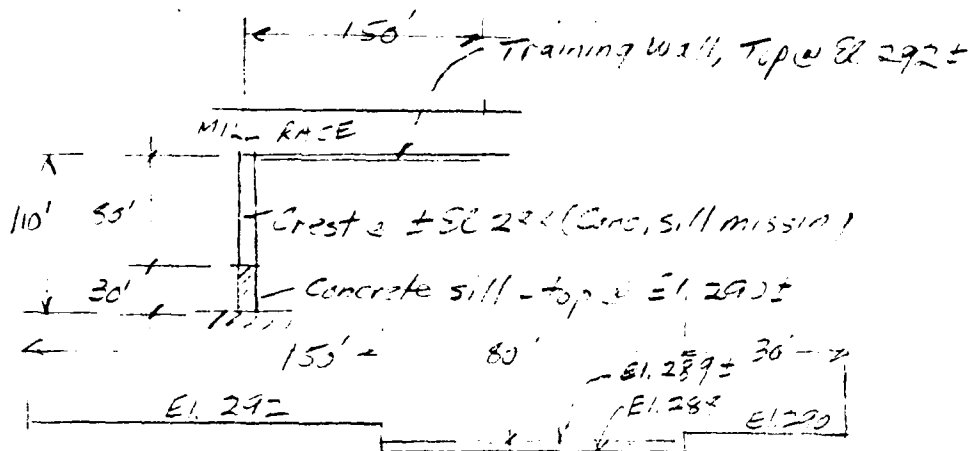 150'
Training Wall, Top @ El 292±
MILL RACE
110'
80'
Crest @ ± El 288 (Conc. sill missing)
30'
Concrete sill - top @ El. 290±
150' 80' 30'
El. 289±
El. 292 El. 288 El. 290